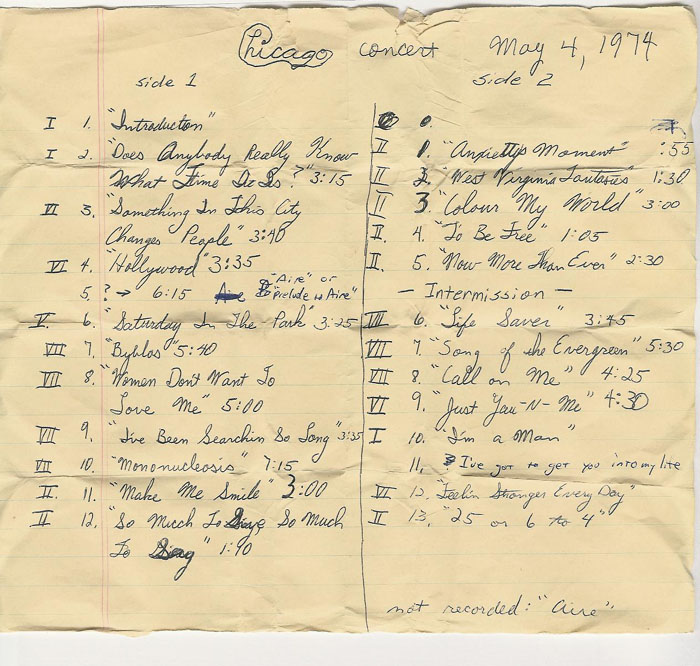 Chicago concert May 4, 1974
side 1
I 1. "Introduction"
I 2. "Does Anybody Really Know
What Time It Is?" 3:15
VI 3. "Something In This City
Changes People" 3:40
VI 4. "Hollywood" 3:35
5. ? → 6:15 "Aire" or
"Prelude to Aire"
V. 6. "Saturday In The Park" 3:25
VII 7. "Byblos" 5:40
VII 8. "Women Don't Want To
Love Me" 5:00
VII 9. "I've Been Searchin So Long" 3:35
VII 10. "Mononucleosis" 7:15
II 11. "Make Me Smile" 3:00
II 12. "So Much To Say, So Much
To Sing" 1:10
side 2
0.
II 1. "Anxiety's Moment" :55
II 2. "West Virginia Fantasies" 1:30
II 3 "Colour My World" 3:00
II. 4. "To Be Free" 1:05
II. 5. "Now More Than Ever" 2:30
— Intermission —
VII 6. "Life Saver" 3:45
VII 7. "Song of the Evergreen" 5:30
VII 8. "Call on Me" 4:25
VI 9. "Just You-N-Me" 4:30
I 10. "I'm a Man"
11. I've got to get you into my life
VI 12. "Feelin Stronger Every Day"
II 13. "25 or 6 to 4"
not recorded: "Aire"